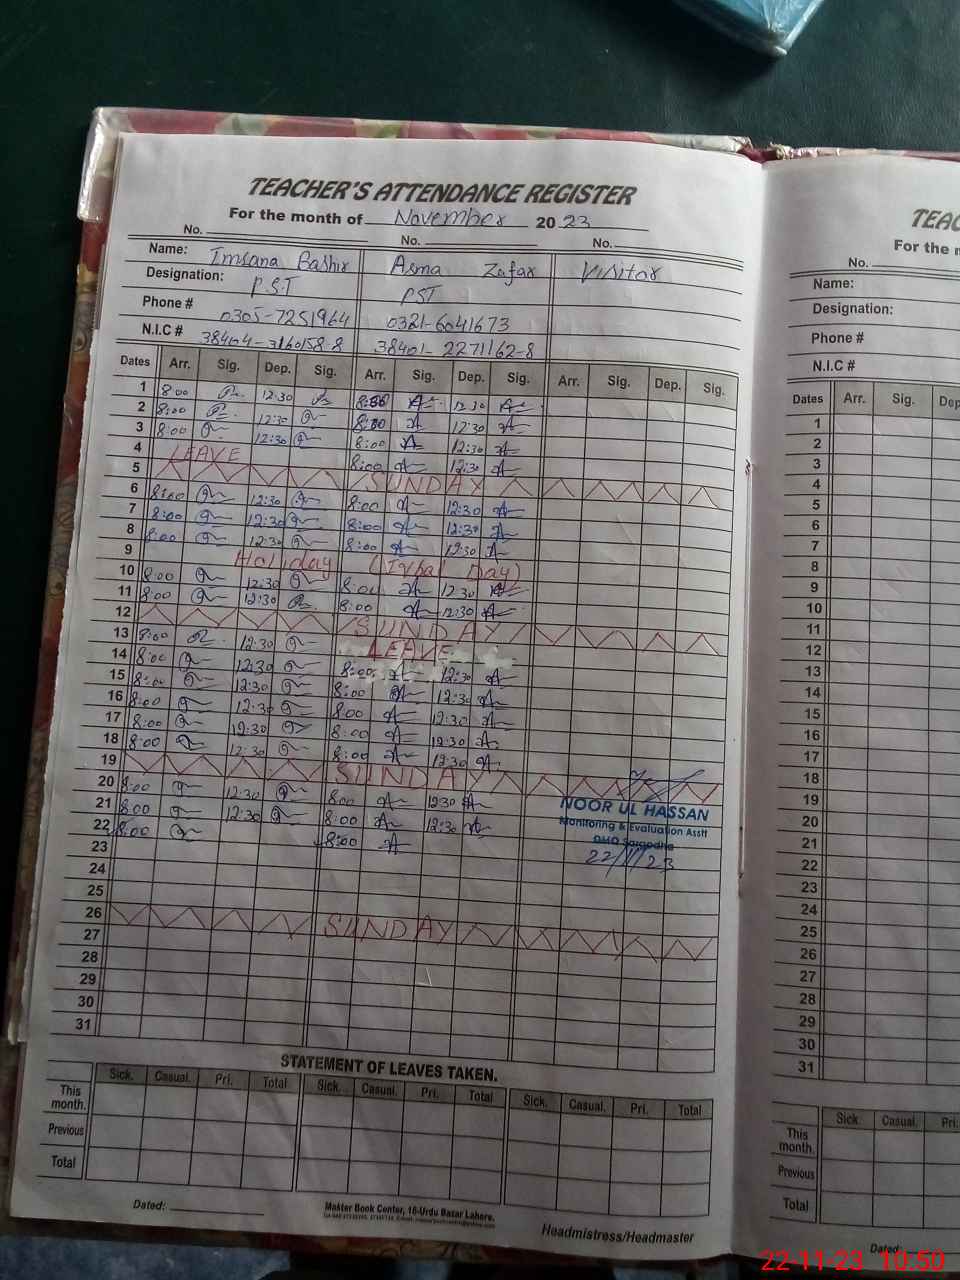 TEACHER'S ATTENDANCE REGISTER
For the month of November 2023
No. No. No.
Name: Imrana Bashir Asma Zafar Visitor
Designation: P.S.T PST
Phone # 0305-7251964 0321-6041673
N.I.C # 38404-3160158-8 38401-2271162-8
Dates Arr. Sig. Dep. Sig. Arr. Sig. Dep. Sig. Arr. Sig. Dep. Sig.
1 8:00 12:30 8:00 12:30
2 8:00 12:30 8:00 12:30
3 8:00 12:30 8:00 12:30
4 LEAVE 8:00 12:30
5 SUNDAY
6 8:00 12:30 8:00 12:30
7 8:00 12:30 8:00 12:30
8 8:00 12:30 8:00 12:30
9 Holiday (Iqbal Day)
10 8:00 12:30 8:00 12:30
11 8:00 12:30 8:00 12:30
12 SUNDAY
13 8:00 12:30 LEAVE
14 8:00 12:30 8:00 12:30
15 8:00 12:30 8:00 12:30
16 8:00 12:30 8:00 12:30
17 8:00 12:30 8:00 12:30
18 8:00 12:30 8:00 12:30
19 SUNDAY
20 8:00 12:30 8:00 12:30
21 8:00 12:30 8:00 12:30
22 8:00 8:00
23
24
25
26 SUNDAY
27
28
29
30
31
NOOR UL HASSAN
Monitoring & Evaluation Asstt
DMO Sargodha
22/11/23
STATEMENT OF LEAVES TAKEN.
Sick. Casual. Pri. Total Sick. Casual. Pri. Total Sick. Casual. Pri. Total
This month.
Previous
Total
Dated:
Master Book Center, 16-Urdu Bazar Lahore.
Headmistress/Headmaster
TEAC
For the m
No.
Name:
Designation:
Phone #
N.I.C #
Dates Arr. Sig. Dep
1
2
3
4
5
6
7
8
9
10
11
12
13
14
15
16
17
18
19
20
21
22
23
24
25
26
27
28
29
30
31
Sick. Casual. Pri.
This month.
Previous
Total
Dated:
22-11-23 10:50